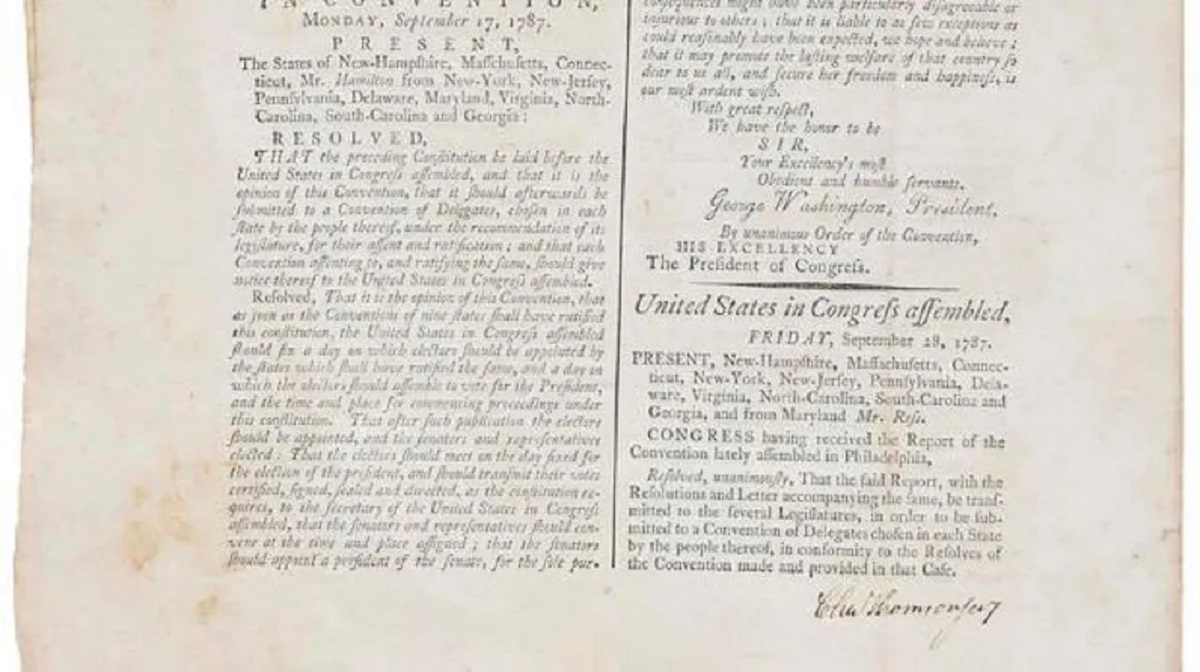 IN CONVENTION,
MONDAY, September 17, 1787.
PRESENT,
The States of New-Hampshire, Maſſachuſetts, Connec-
ticut, Mr. Hamilton from New-York, New-Jerſey,
Pennſylvania, Delaware, Maryland, Virginia, North-
Carolina, South-Carolina and Georgia:
RESOLVED,
THAT the preceding Conſtitution be laid before the
United States in Congreſs aſſembled, and that it is the
opinion of this Convention, that it ſhould afterwards be
ſubmitted to a Convention of Delegates, choſen in each
ſtate by the people thereof, under the recommendation of its
legiſlature, for their aſſent and ratification; and that each
Convention aſſenting to, and ratifying the ſame, ſhould give
notice thereof to the United States in Congreſs aſſembled.
Reſolved, That it is the opinion of this Convention, that
as ſoon as the Conventions of nine ſtates ſhall have ratified
this conſtitution, the United States in Congreſs aſſembled
ſhould fix a day on which electors ſhould be appointed by
the ſtates which ſhall have ratified the ſame, and a day on
which the electors ſhould aſſemble to vote for the Preſident,
and the time and place for commencing proceedings under
this conſtitution. That after ſuch publication the electors
ſhould be appointed, and the ſenators and repreſentatives
elected: That the electors ſhould meet on the day fixed for
the election of the preſident, and ſhould tranſmit their votes
certified, ſigned, ſealed and directed, as the conſtitution re-
quires, to the ſecretary of the United States in Congreſs
aſſembled, that the ſenators and repreſentatives ſhould con-
vene at the time and place aſſigned; that the ſenators
ſhould appoint a preſident of the ſenate, for the ſole pur-
conſequences might have been particularly diſagreeable or
injurious to others; that it is liable to as few exceptions as
could reaſonably have been expected, we hope and believe;
that it may promote the laſting welfare of that country ſo
dear to us all, and ſecure her freedom and happineſs, is
our moſt ardent wiſh.
With great reſpect,
We have the honor to be
SIR,
Your Excellency's moſt
Obedient and humble ſervants.
George Waſhington, Preſident.
By unanimous Order of the Convention,
HIS EXCELLENCY
The Preſident of Congreſs.
United States in Congreſs aſſembled,
FRIDAY, September 28, 1787.
PRESENT, New-Hampſhire, Maſſachuſetts, Connec-
ticut, New-York, New-Jerſey, Pennſylvania, Dela-
ware, Virginia, North-Carolina, South-Carolina and
Georgia, and from Maryland Mr. Roſs.
CONGRESS having received the Report of the
Convention lately aſſembled in Philadelphia,
Reſolved, unanimouſly, That the ſaid Report, with the
Reſolutions and Letter accompanying the ſame, be tranſ-
mitted to the ſeveral Legiſlatures, in order to be ſub-
mitted to a Convention of Delegates choſen in each State
by the people thereof, in conformity to the Reſolves of
the Convention made and provided in that Caſe.
Chas Thomson Secy